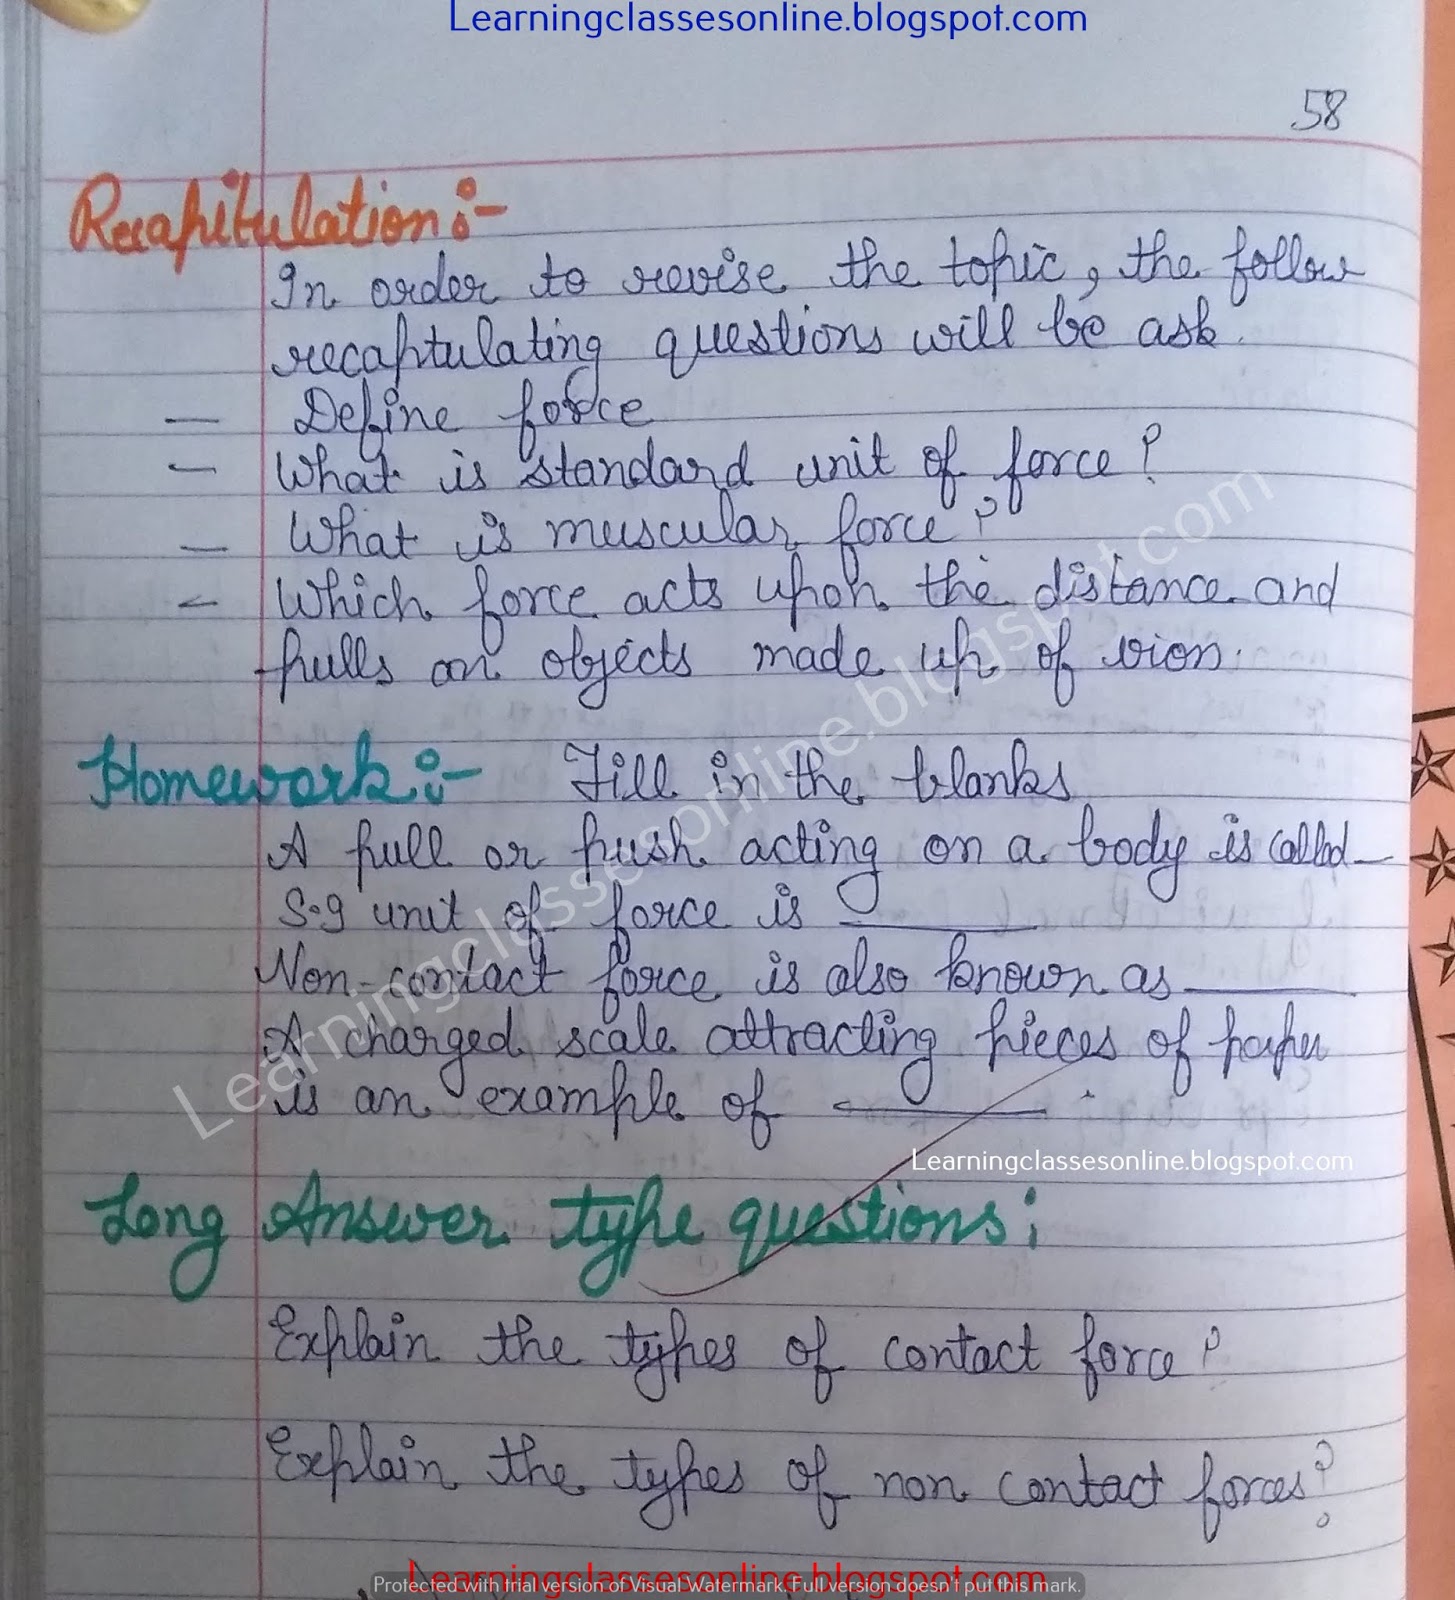 Learningclassesonline.blogspot.com
58
Recapitulation:-
In order to revise the topic, the follow
recaptulating questions will be ask.
- Define force
- What is standard unit of force?
- What is muscular force?
- Which force acts upon the distance and
pulls on objects made up of irion.
Homework:- Fill in the blanks
A pull or push acting on a body is called_
S.I unit of force is ______
Non-contact force is also known as ______
A charged scale attracting pieces of paper
is an example of ______.
Learningclassesonline.blogspot.com
Learningclassesonline.blogspot.com
Long Answer type questions:
Explain the types of contact force?
Explain the types of non contact forces?
Learningclassesonline.blogspot.com
Protected with trial version of Visual Watermark. Full version doesn't put this mark.